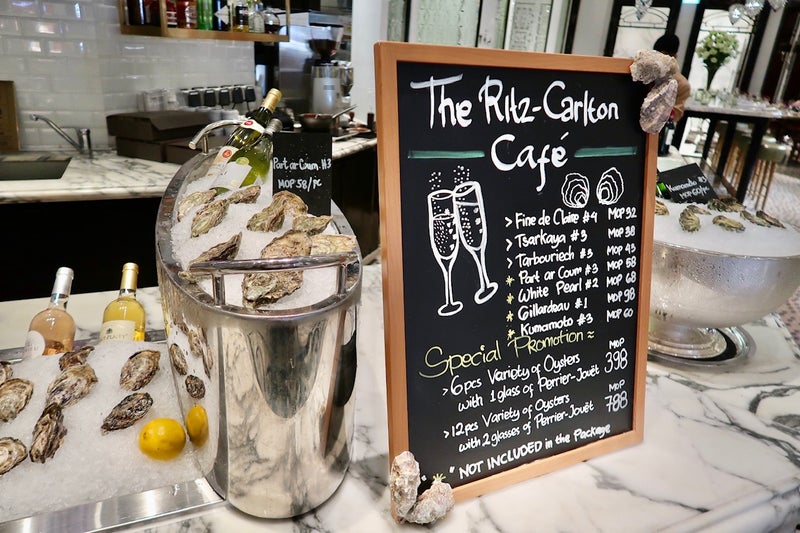 The Ritz-Carlton
Café
> Fine de Claire #4 MOP 32
> Tsarkaya #3 MOP 38
> Tarbouriech #3 MOP 43
* Part ar Coum #3 MOP 58
* White Pearl #2 MOP 68
* Gillardeau #1 MOP 98
* Kumamoto #3 MOP 60
Special Promotion ~
> 6pcs Variety of Oysters MOP
with 1 glass of Perrier-Jouët 398
> 12pcs Variety of Oysters MOP
with 2 glasses of Perrier-Jouët 788
"*" NOT INCLUDED in the Package
Part ar Coum #3
MOP 58/PC
Kumamoto #3
MOP 60/PC